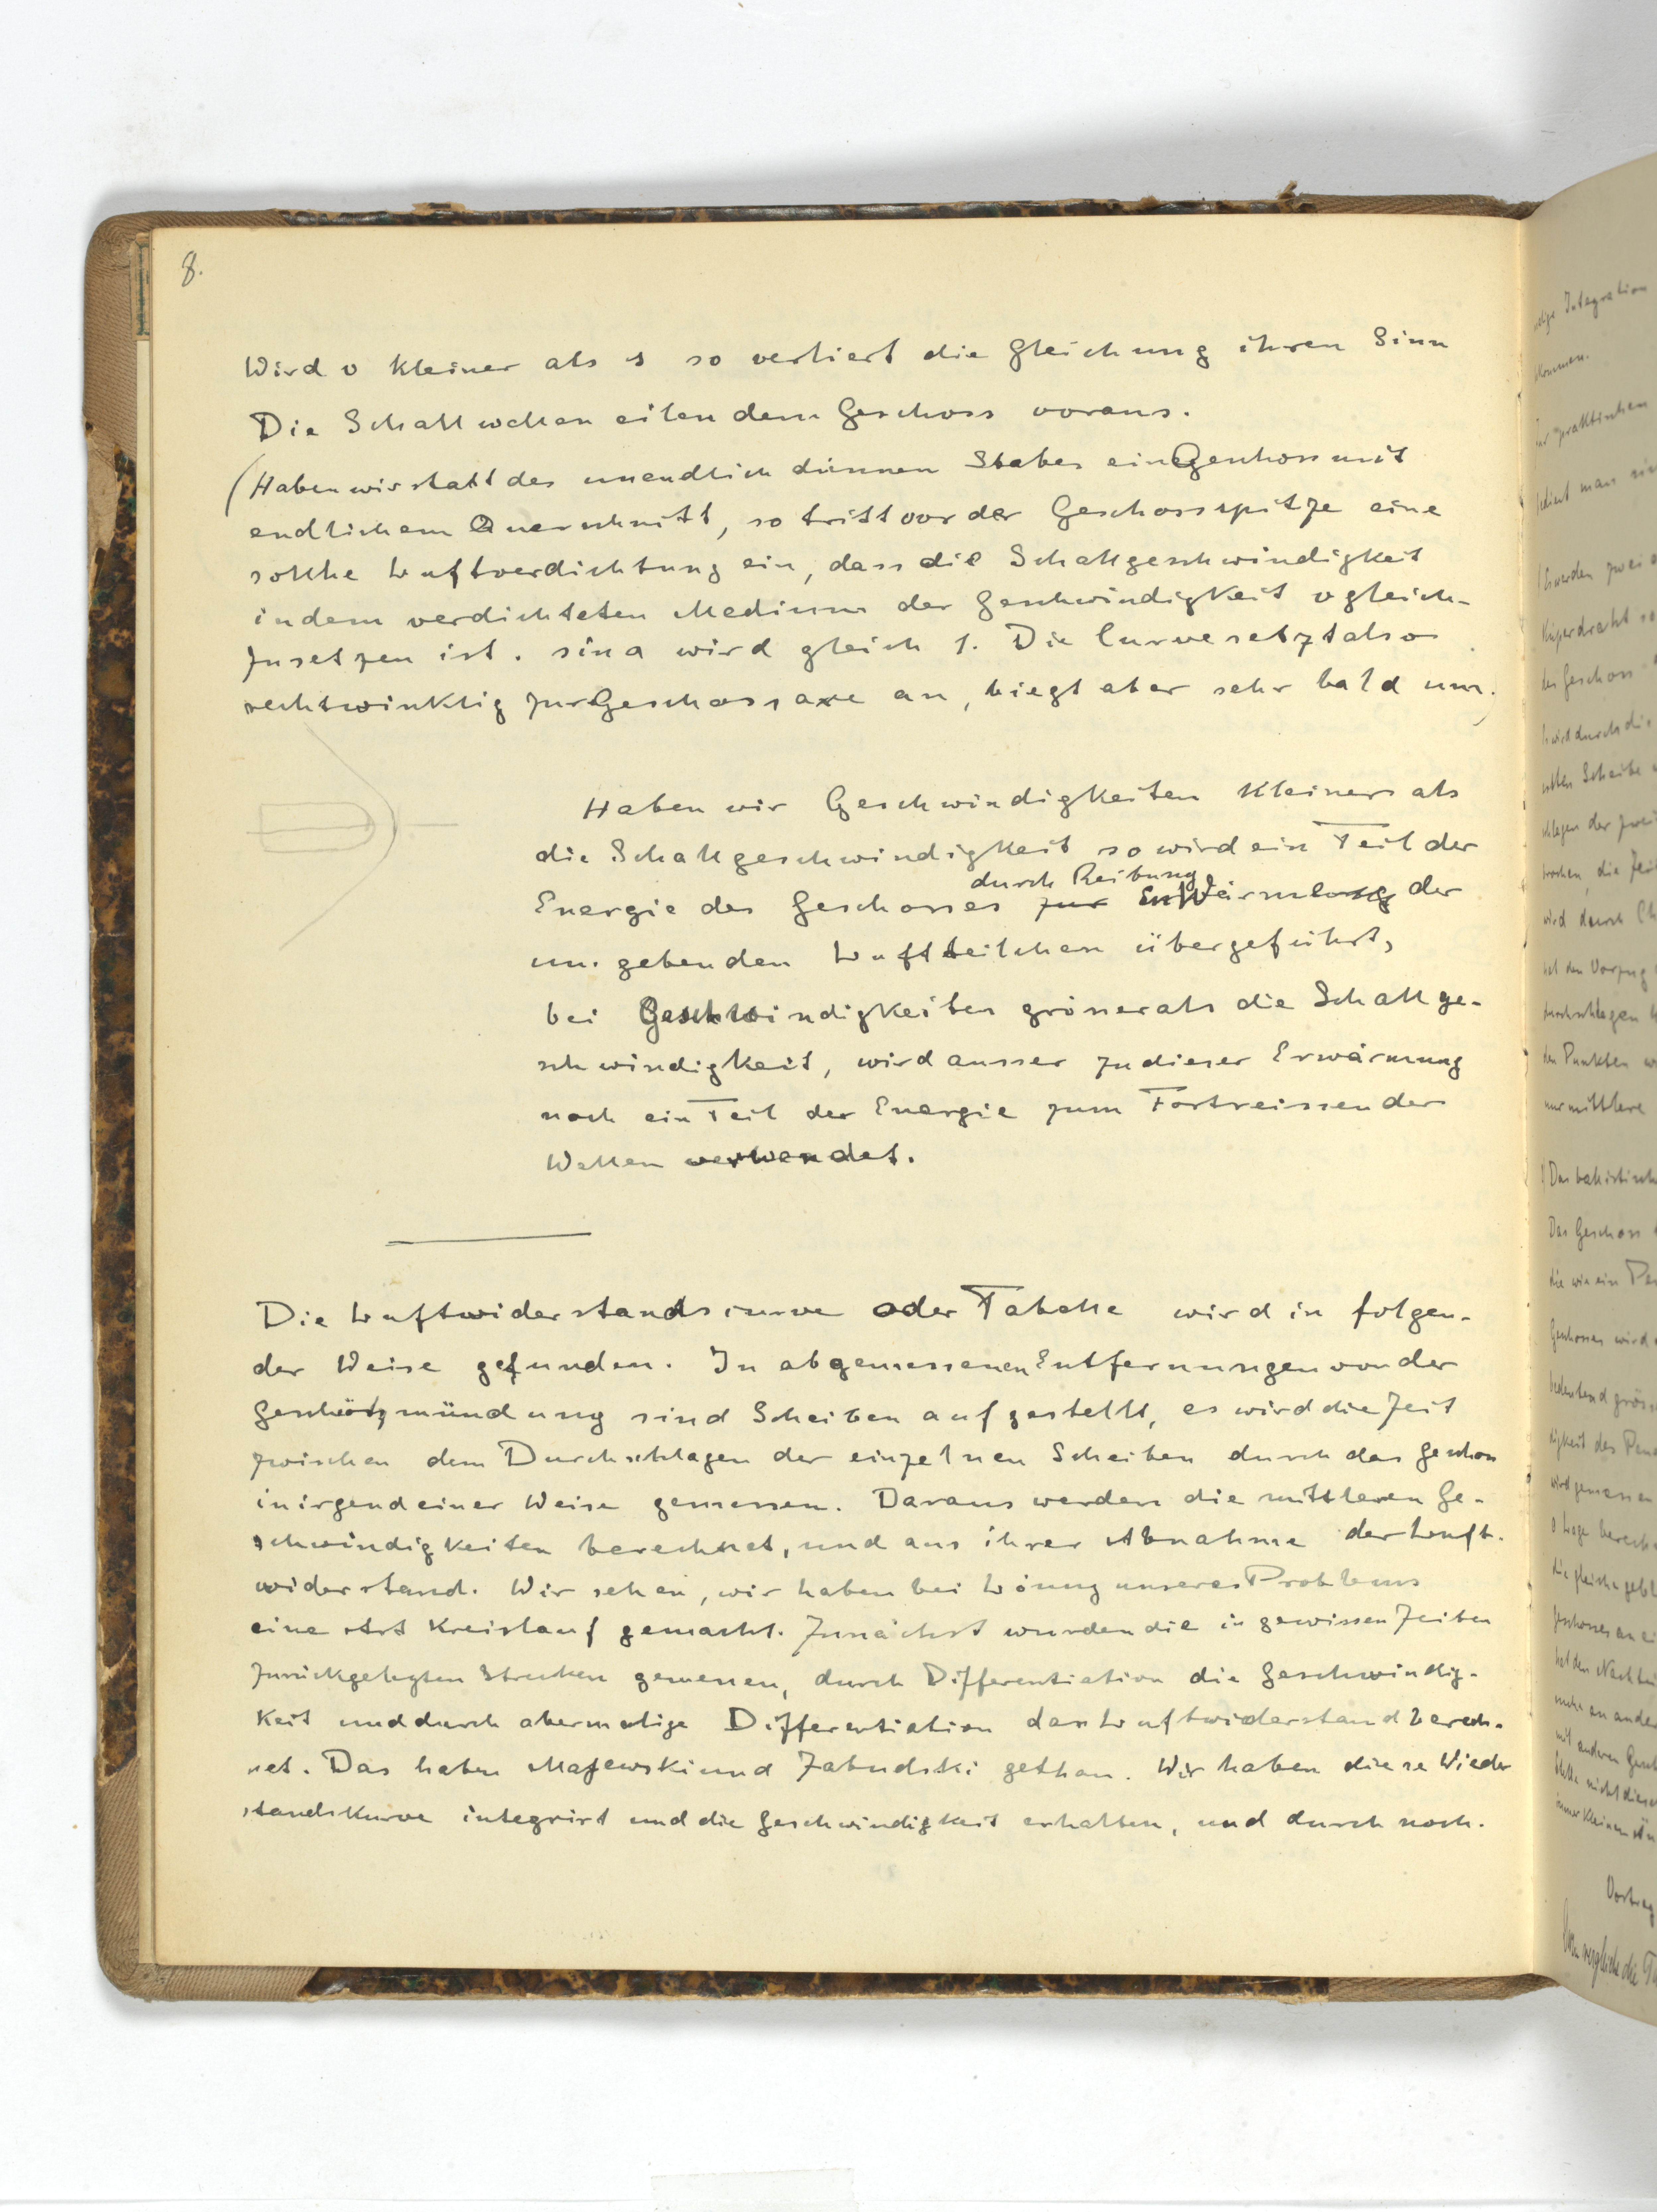 8.
Wird v kleiner als s so verliert die Gleichung ihren Sinn
Die Schallwellen eilen dem Geschoss voraus.
(Haben wir statt des unendlich dünnen Stabes ein Geschoss mit
endlichem Querschnitt, so tritt vor der Geschossspitze eine
solche Luftverdichtung ein, dass die Schallgeschwindigkeit
in dem verdichteten Medium der Geschwindigkeit v gleich-
zusetzen ist. sin a wird gleich 1. Die Curve setzt also
rechtwinklig zur Geschossaxe an, biegt aber sehr bald um.)
Haben wir Geschwindigkeiten kleiner als
die Schallgeschwindigkeit so wird ein Teil der
durch Reibung
Energie des Geschosses zur in Wärme der
um gebenden Luftteilchen übergeführt,
bei Geschwindigkeiten grösser als die Schallge-
schwindigkeit, wird ausser zu dieser Erwärmung
noch ein Teil der Energie zum Fortreissen der
Wellen verwendet.
Die Luftwiderstandscurve oder Tabelle wird in folgen-
der Weise gefunden. In abgemessenen Entfernungen von der
Geschützmündung sind Scheiben aufgestellt, es wird die Zeit
zwischen dem Durchschlagen der einzelnen Scheiben durch das Geschoss
in irgend einer Weise gemessen. Daraus werden die mittleren Ge-
schwindigkeiten berechnet, und aus ihrer Abnahme der Luft-
widerstand. Wir sehen, wir haben bei Lösung unseres Problems
eine Art Kreislauf gemacht. Zunächst wurden die in gewissen Zeiten
zurückgelegten Strecken gemessen, durch Differentiation die Geschwindig-
keit und durch abermalige Differentiation der Luftwiderstand berech-
net. Das haben Majewski und Zabudski gethan. Wir haben diese Wieder
standskurve integrirt und die Geschwindigkeit erhalten, und durch noch-
Integration
kommen.
praktischen
man
werden zwei
Kupferdraht
Geschoss
wird durch die
Scheibe
die Zeit
wird durch
den Vorzug
durchschlagen
den Punkten
nur mittlere
Das ballistische
Das Geschoss
die wie ein
Geschosses wird
bedeutend
des
wird gemessen
die gleiche
den Nachteil
an ander
mit anderen
nicht
immer kleinen
Vortrag